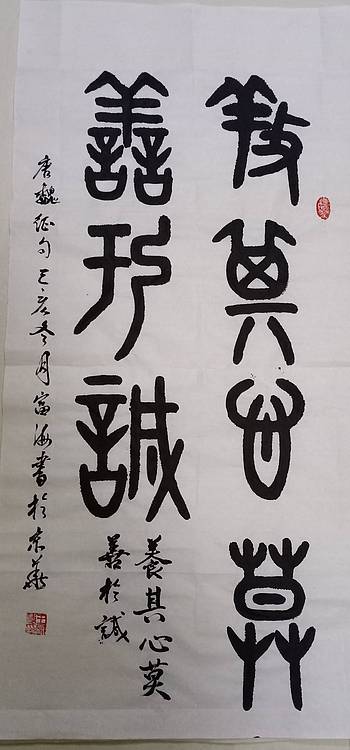 養其心莫
善於誠
養其心莫
善於誠
唐魏征句己亥冬月富海書於京華